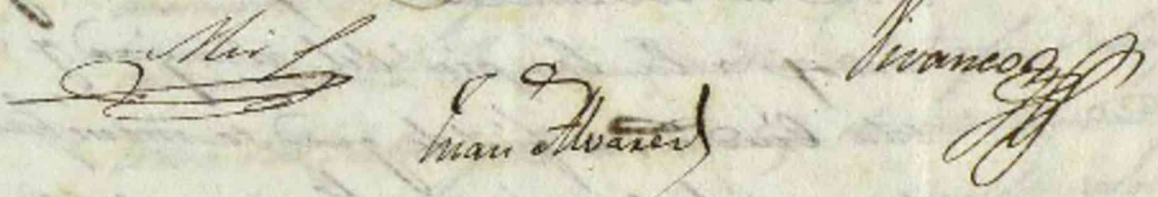 Mir
Juan Alvarez
Vivanco